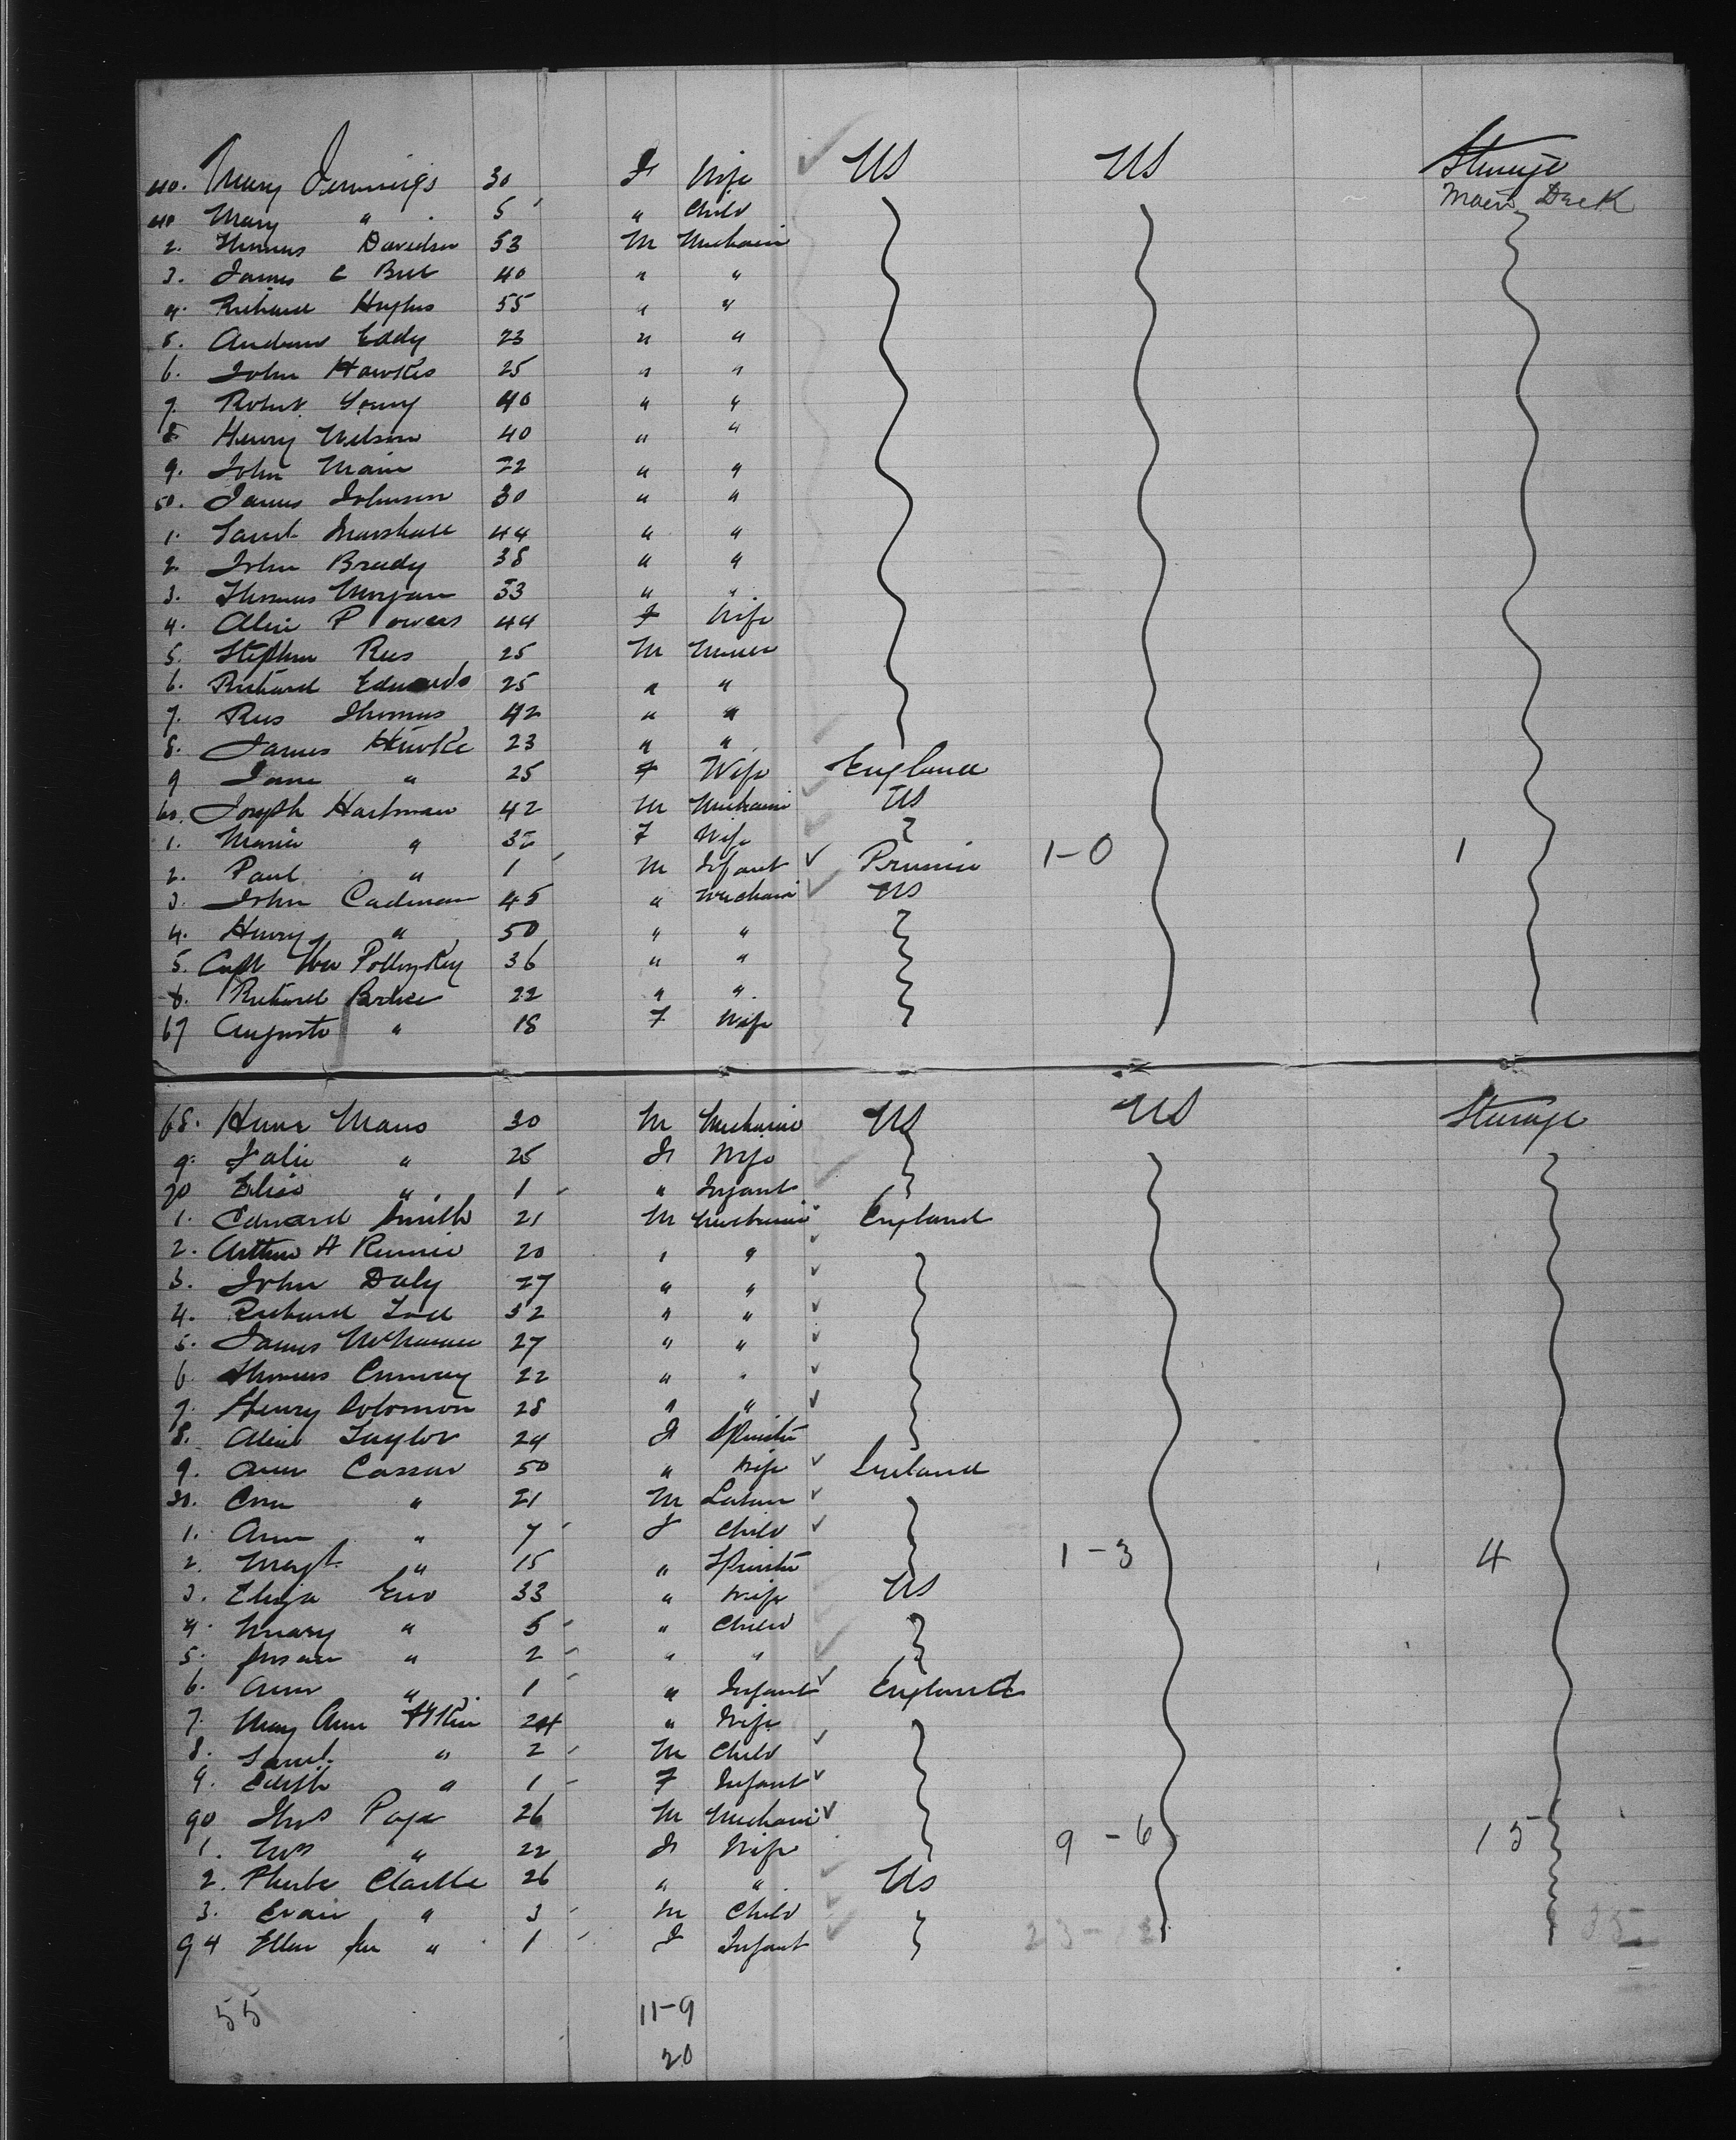 40. Mary Jennings 30 F Wife US US Steerage
Main Deck
40 Mary " 5 " Child
2. Thomas Davidson 53 M Mechanic
3. James C 40 " "
4. Richard Hughes 55 " "
5. Andrew Eddy 23 " "
6. John Hawkes 25 " "
7. Robert Young 40 " "
8 Henry Wilson 40 " "
9. John Main 22 " "
50. James Johnson 30 " "
1. Saml Marshall 44 " "
2 John Brady 38 " "
3. Thomas Morgan 53 " "
4. Alice P owers 44 F Wife
5. Stephen Rees 25 M Miner
6. Richard Edwards 25 " "
7. Rees Thomas 42 " "
8. James Hawke 23 " "
9 Jane " 25 F Wife England
60. Joseph Hartman 42 M Mechanic US
1. Maria " 32 F Wife
2. Paul " 1 M Infant Prussia 1-0 1
3. John Cadman 45 " Mechanic US
4. Henry " 50 " "
5. Capt Wm 36 " "
6. Richard 22 " "
67 Augusta " 18 F Wife
68. Maas 30 M Mechanic US US Steerage
9. Julie " 25 F Wife
70 Elise " 1 " Infant
1. Edward Smith 21 M Mechanic England
2. Arthur H Rennie 20 " "
3. John Daly 27 " "
4. Richard 32 " "
5. James McNamee 27 " "
6. Thomas Conway 22 " "
7. Henry Solomon 28 " "
8. Alice Taylor 24 F Spinster
9. Ann 50 " Wife Ireland
" 21 M
1. Ann " 7 F Child
2. Margt " 15 " Spinster 1-3 4
3. Eliza 33 " Wife US
4. Mary " 5 " Child
5. Susan " 2 " "
6. Ann " 1 " Infant England
7. Mary Ann 24 " Wife
8. Saml " 2 M Child
9. Edith " 1 F Infant
90 Thos Page 26 M Mechanic
1. Mrs " 22 F Wife 9-6 15
2. Phebe Clarke 26 " " US
3. Evan " 3 M Child
94 Ellen " 1 F Infant 23- 35
55 11-9
20